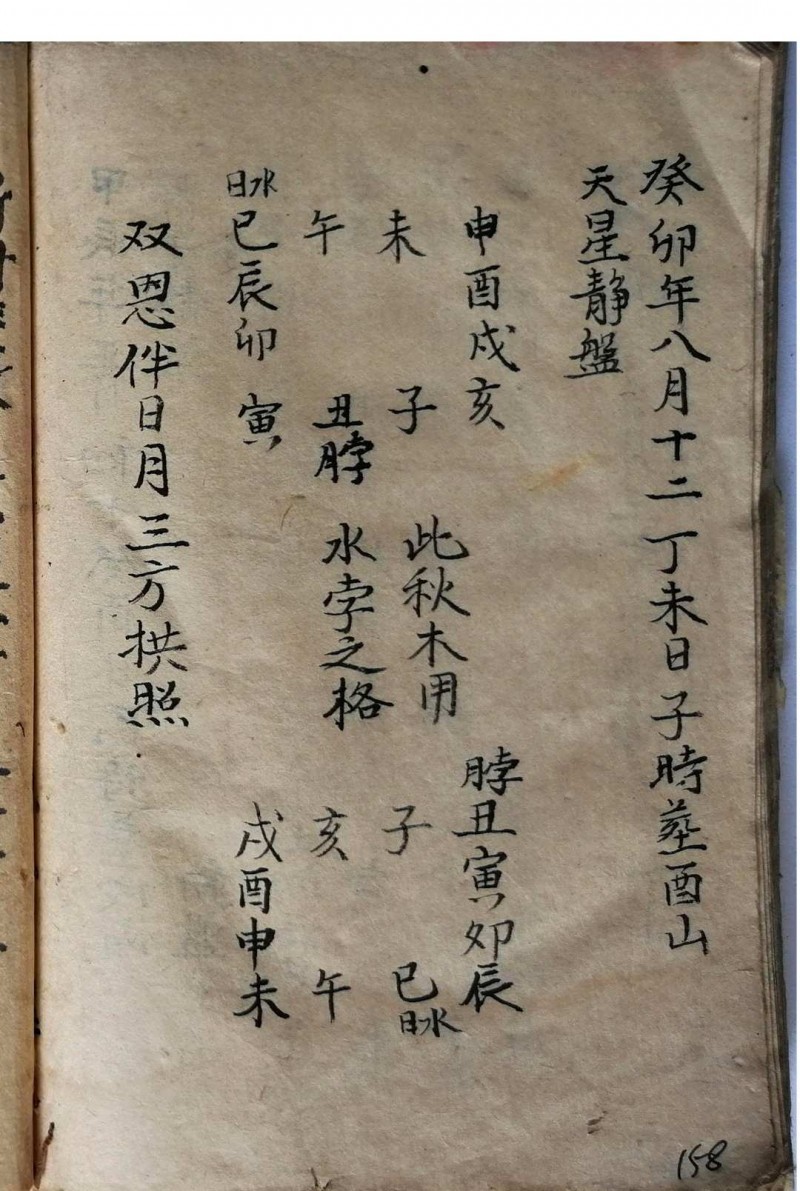 癸卯年八月十二丁未日子時塟酉山
天星静盤
申酉戌亥
未 子
午 丑脖
日水巳辰卯 寅
此秋木用
水孛之格
脖丑寅卯辰
子 巳日水
亥 午
戌酉申未
双恩伴日月三方拱照
158